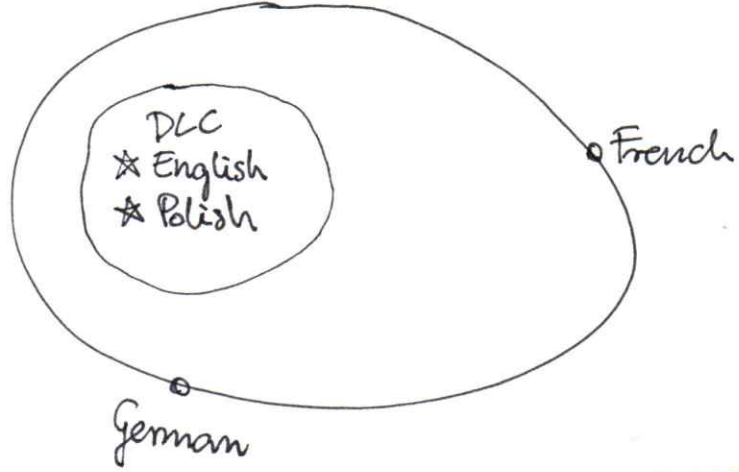 DLC
☆ English
☆ Polish
French
German